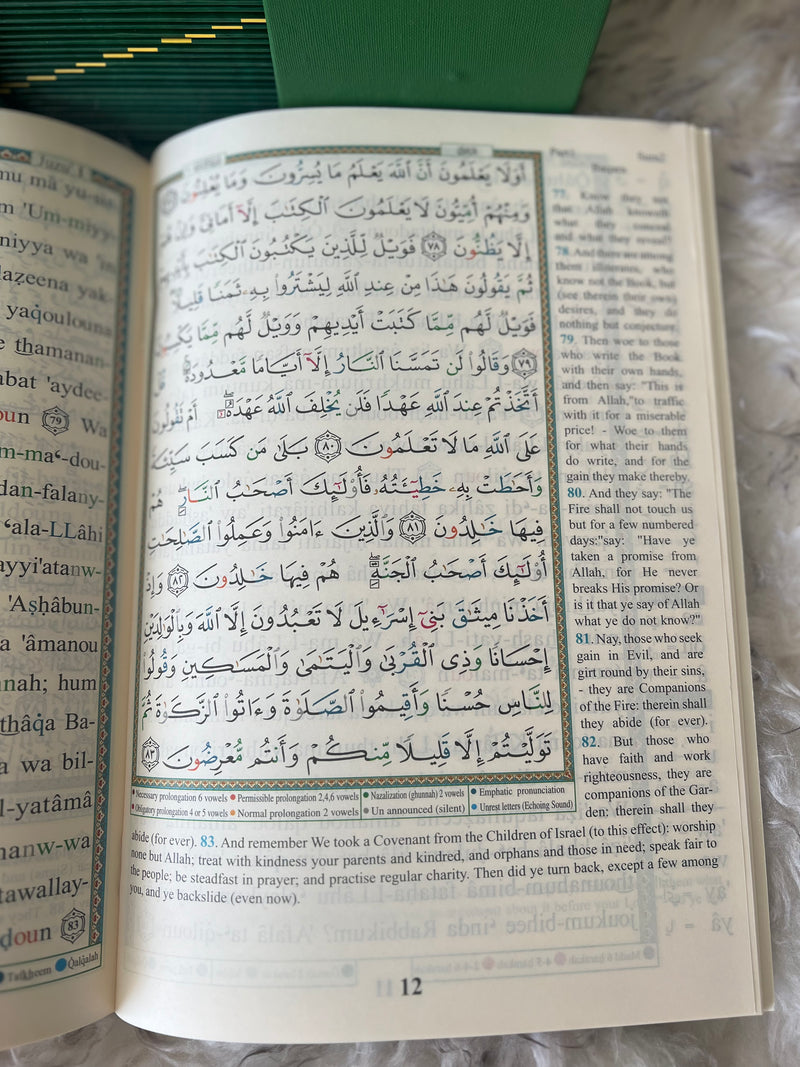 Juzu' 1
mu mâ yu-
m 'Um-miyy-
niyya wa
lazeena yak-
yaqoulouna
e thamanan-
bat 'aydee-
oun 79 Wa
m-ma‘-dou-
dan-falany-
‘ala-LLâhi
ayyi'atanw-
'Aṣḥâbun-
a 'âmanou
nah; hum
thâqa Ba-
a wa bil-
l-yatâmâ
anw-wa
tawallay-
doun 83
Tafkheem Qalqalah
أَوَلَا يَعْلَمُونَ أَنَّ ٱللَّهَ يَعْلَمُ مَا يُسِرُّونَ وَمَا يُعْلِنُونَ
وَمِنْهُمْ أُمِّيُّونَ لَا يَعْلَمُونَ ٱلْكِتَٰبَ إِلَّآ أَمَانِىَّ وَإِنْ هُمْ
إِلَّا يَظُنُّونَ ٧٨ فَوَيْلٌ لِّلَّذِينَ يَكْتُبُونَ ٱلْكِتَٰبَ بِأَيْدِيهِمْ
ثُمَّ يَقُولُونَ هَٰذَا مِنْ عِندِ ٱللَّهِ لِيَشْتَرُوا۟ بِهِۦ ثَمَنًا قَلِيلًا
فَوَيْلٌ لَّهُم مِّمَّا كَتَبَتْ أَيْدِيهِمْ وَوَيْلٌ لَّهُم مِّمَّا يَكْسِبُونَ
٧٩ وَقَالُوا۟ لَن تَمَسَّنَا ٱلنَّارُ إِلَّآ أَيَّامًا مَّعْدُودَةً ۚ قُلْ
أَتَّخَذْتُمْ عِندَ ٱللَّهِ عَهْدًا فَلَن يُخْلِفَ ٱللَّهُ عَهْدَهُۥٓ ۖ أَمْ تَقُولُونَ
عَلَى ٱللَّهِ مَا لَا تَعْلَمُونَ ٨٠ بَلَىٰ مَن كَسَبَ سَيِّئَةً
وَأَحَٰطَتْ بِهِۦ خَطِيٓـَٔتُهُۥ فَأُو۟لَٰٓئِكَ أَصْحَٰبُ ٱلنَّارِ ۖ هُمْ
فِيهَا خَٰلِدُونَ ٨١ وَٱلَّذِينَ ءَامَنُوا۟ وَعَمِلُوا۟ ٱلصَّٰلِحَٰتِ
أُو۟لَٰٓئِكَ أَصْحَٰبُ ٱلْجَنَّةِ ۖ هُمْ فِيهَا خَٰلِدُونَ ٨٢ وَإِذْ
أَخَذْنَا مِيثَٰقَ بَنِىٓ إِسْرَٰٓءِيلَ لَا تَعْبُدُونَ إِلَّا ٱللَّهَ وَبِٱلْوَٰلِدَيْنِ
إِحْسَانًا وَذِى ٱلْقُرْبَىٰ وَٱلْيَتَٰمَىٰ وَٱلْمَسَٰكِينِ وَقُولُوا۟
لِلنَّاسِ حُسْنًا وَأَقِيمُوا۟ ٱلصَّلَوٰةَ وَءَاتُوا۟ ٱلزَّكَوٰةَ ثُمَّ
تَوَلَّيْتُمْ إِلَّا قَلِيلًا مِّنكُمْ وَأَنتُم مُّعْرِضُونَ ٨٣
Necessary prolongation 6 vowels Permissible prolongation 2,4,6 vowels Nazalization (ghunnah) 2 vowels Emphatic pronunciation
Obligatory prolongation 4 or 5 vowels Normal prolongation 2 vowels Un announced (silent) Unrest letters (Echoing Sound)
77. Know they not
that Allah knoweth
what they conceal
and what they reveal?
78. And there are among
them illiterates, who
know not the Book, but
(see therein their own)
desires, and they do
nothing but conjecture.
79. Then woe to those
who write the Book
with their own hands,
and then say: "This is
from Allah,"to traffic
with it for a miserable
price! - Woe to them
for what their hands
do write, and for the
gain they make thereby.
80. And they say: "The
Fire shall not touch us
but for a few numbered
days:"say: "Have ye
taken a promise from
Allah, for He never
breaks His promise? Or
is it that ye say of Allah
what ye do not know?"
81. Nay, those who seek
gain in Evil, and are
girt round by their sins,
- they are Companions
of the Fire: therein shall
they abide (for ever).
82. But those who
have faith and work
righteousness, they are
companions of the Gar-
den: therein shall they
abide (for ever). 83. And remember We took a Covenant from the Children of Israel (to this effect): worship
none but Allah; treat with kindness your parents and kindred, and orphans and those in need; speak fair to
the people; be steadfast in prayer; and practise regular charity. Then did ye turn back, except a few among
you, and ye backslide (even now).
12